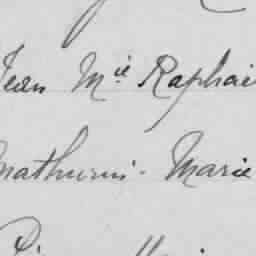 Jean Mie Raphaë
Mathurin - Marie